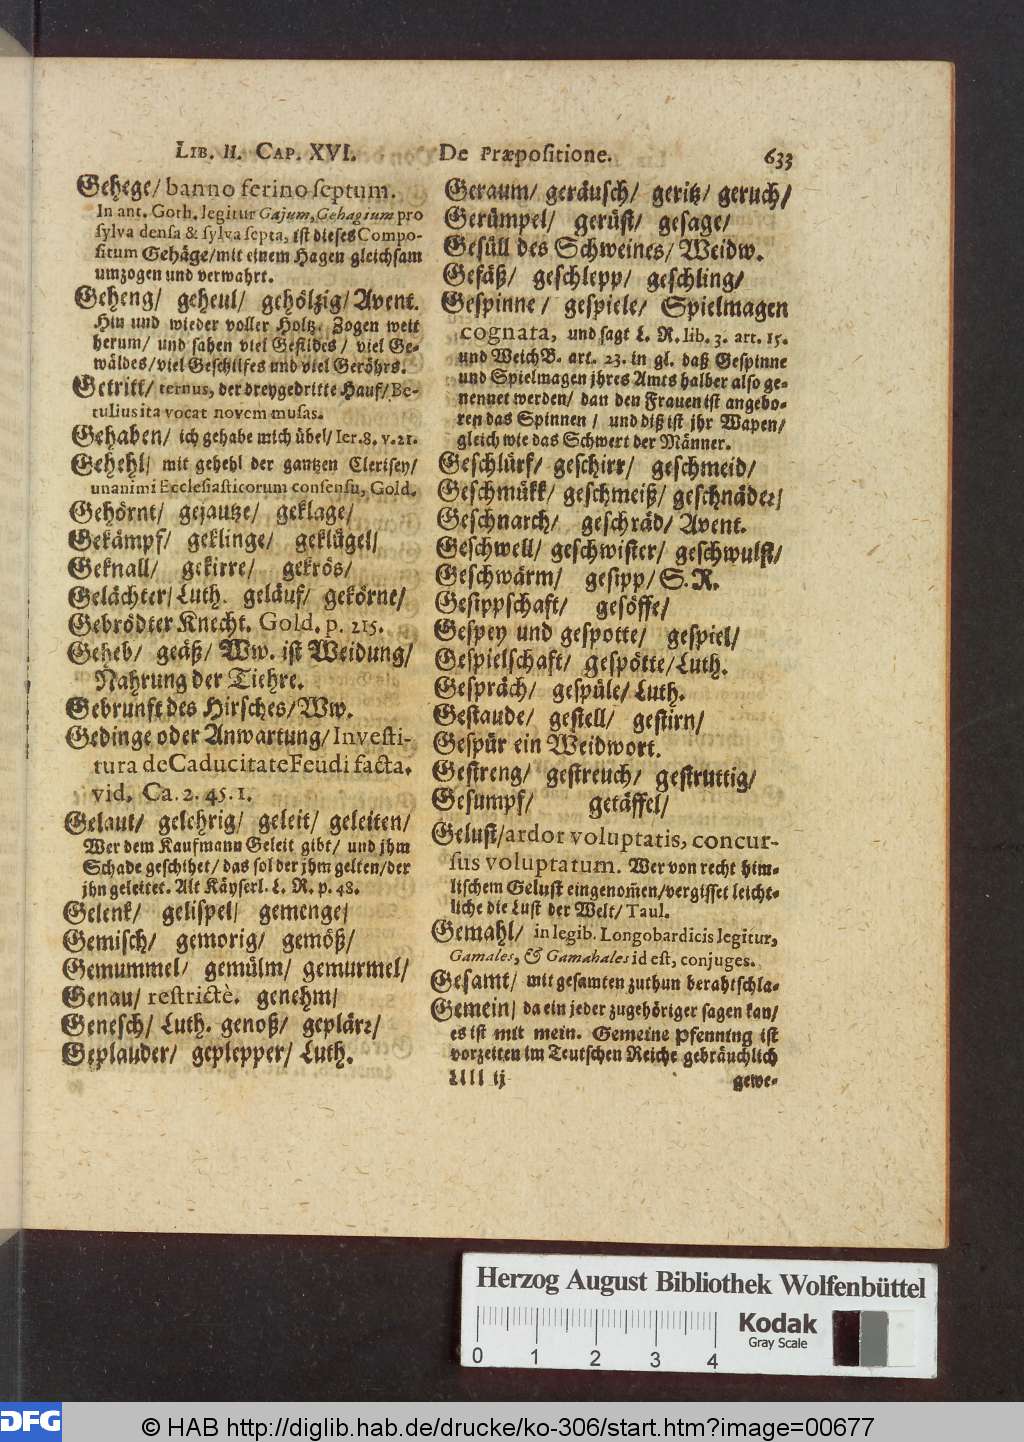 LIB. II. CAP. XVI. De Præpositione. 633
Gehege/ banno ferino septum.
In ant. Goth. legitur Gajum, Gehagium pro
sylva densa & sylva septa, ist dieses Compo-
situm Gehäge/ mit einem Hagen gleichsam
umzogen und verwahrt.
Geheng/ geheul/ gehöltzig/ Avent.
Hin und wieder voller Holtz. Zogen weit
herum/ und sahen viel Gefildes/ viel Ge-
wäldes/ viel Geschilfes und viel Geröhrs.
Getritt/ ternus, der dreygedritte Hauf/ Be-
tulius ita vocat novem musas.
Gehaben/ ich gehabe mich übel/ Ier. 8. v. 21.
Gehehl/ mit gehehl der gantzen Clerisey/
unanimi Ecclesiasticorum consensu, Gold.
Gehörnt/ gejautze/ geklage/
Gekämpf/ geklinge/ geklügel/
Geknall/ gekirre/ gekrös/
Gelächter/ Luth. geläuf/ gekörne/
Gebrödter Knecht. Gold. p. 215.
Geheb/ geäß/ Ww. ist Weidung/
Nahrung der Tiehre.
Gebrunft des Hirsches/ Ww.
Gedinge oder Anwartung/ Investi-
tura de Caducitate Feudi facta.
vid. Ca. 2. 45. 1.
Gelaut/ gelehrig/ geleit/ geleiten/
Wer dem Kaufmann Geleit gibt/ und jhm
Schade geschihet/ das sol der jhm gelten/ der
jhn geleitet. Alt Käyserl. L. R. p. 48.
Gelenk/ gelispel/ gemenge/
Gemisch/ gemorig/ gemöß/
Gemummel/ gemülm/ gemurmel/
Genau/ restrictè. genehm/
Genesch/ Luth. genoß/ geplärr/
Geplauder/ geplepper/ Luth.
Geraum/ geräusch/ geritz/ geruch/
Gerümpel/ gerüst/ gesage/
Gesüll des Schweines/ Weidw.
Gesäß/ geschlepp/ geschling/
Gespinne/ gespiele/ Spielmagen
cognata, und sagt L. R. lib. 3. art. 15.
und WeichB. art. 23. in gl. daß Gespinne
und Spielmagen jhres Amts halber also ge-
nennet werden/ dan den Frauen ist angebo-
ren das Spinnen/ und diß ist jhr Wapen/
gleich wie das Schwert der Männer.
Geschlürf/ geschirr/ geschmeid/
Geschmükk/ geschmeiß/ geschnäder/
Geschnarch/ geschräd/ Avent.
Geschwell/ geschwister/ geschwulst/
Geschwärm/ gesipp/ S. R.
Gesippschaft/ gesöffe/
Gespey und gespotte/ gespiel/
Gespielschaft/ gespötte/ Luth.
Gespräch/ gespüle/ Luth.
Gestaude/ gestell/ gestirn/
Gespür ein Weidwort.
Gestreng/ gestreuch/ gestruttig/
Gesumpf/ getäffel/
Gelust/ ardor voluptatis, concur-
sus voluptatum. Wer von recht him-
lischem Gelust eingenom̃en/ vergisset leicht-
liche die Lust der Welt/ Taul.
Gemahl/ in legib. Longobardicis legitur,
Gamales, & Gamahales id est, conjuges.
Gesamt/ mit gesamten zuthun berahtschla-
Gemein/ da ein jeder zugehöriger sagen kan/
es ist mit mein. Gemeine Pfenning ist
vorzeiten im Teutschen Reiche gebräuchlich
Llll ij gewe-
Herzog August Bibliothek Wolfenbüttel
0 1 2 3 4
Kodak
Gray Scale
DFG
© HAB http://diglib.hab.de/drucke/ko-306/start.htm?image=00677